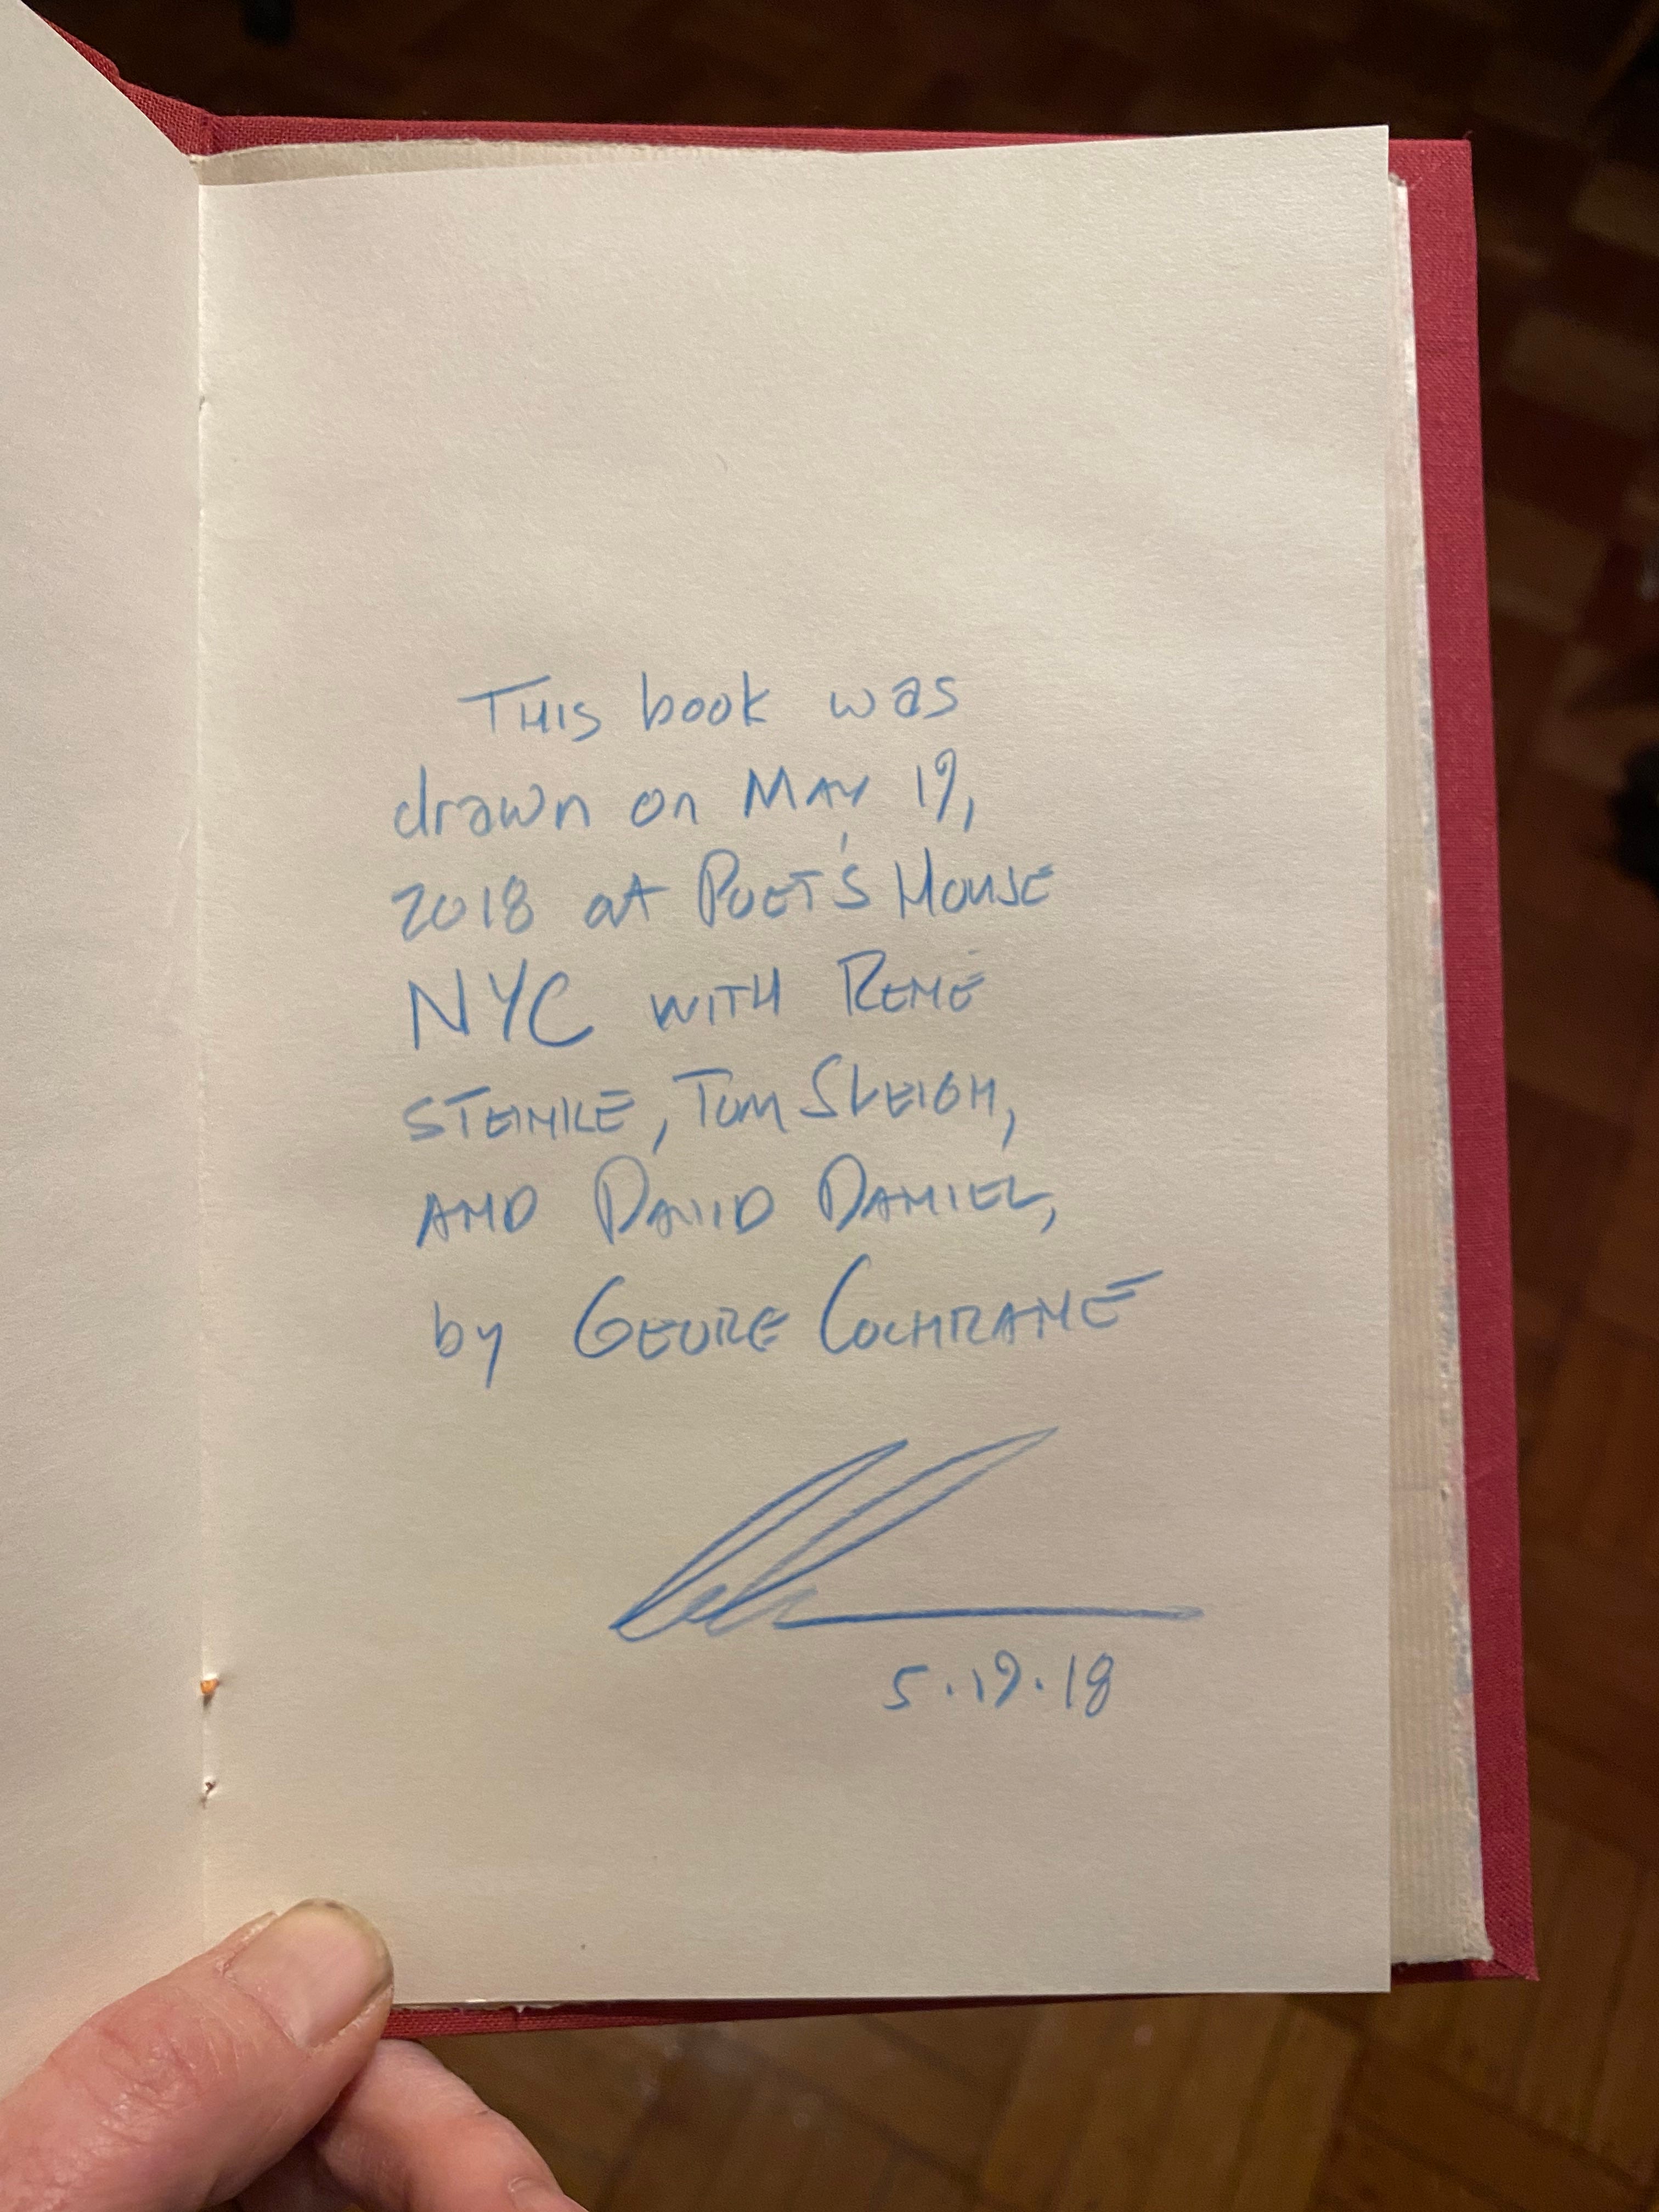 This book was
drawn on May 19,
2018 at Poet's House
NYC with René
Steinke, Tom Sleigh,
and David Daniel,
by Geore Cochrane
5.19.18